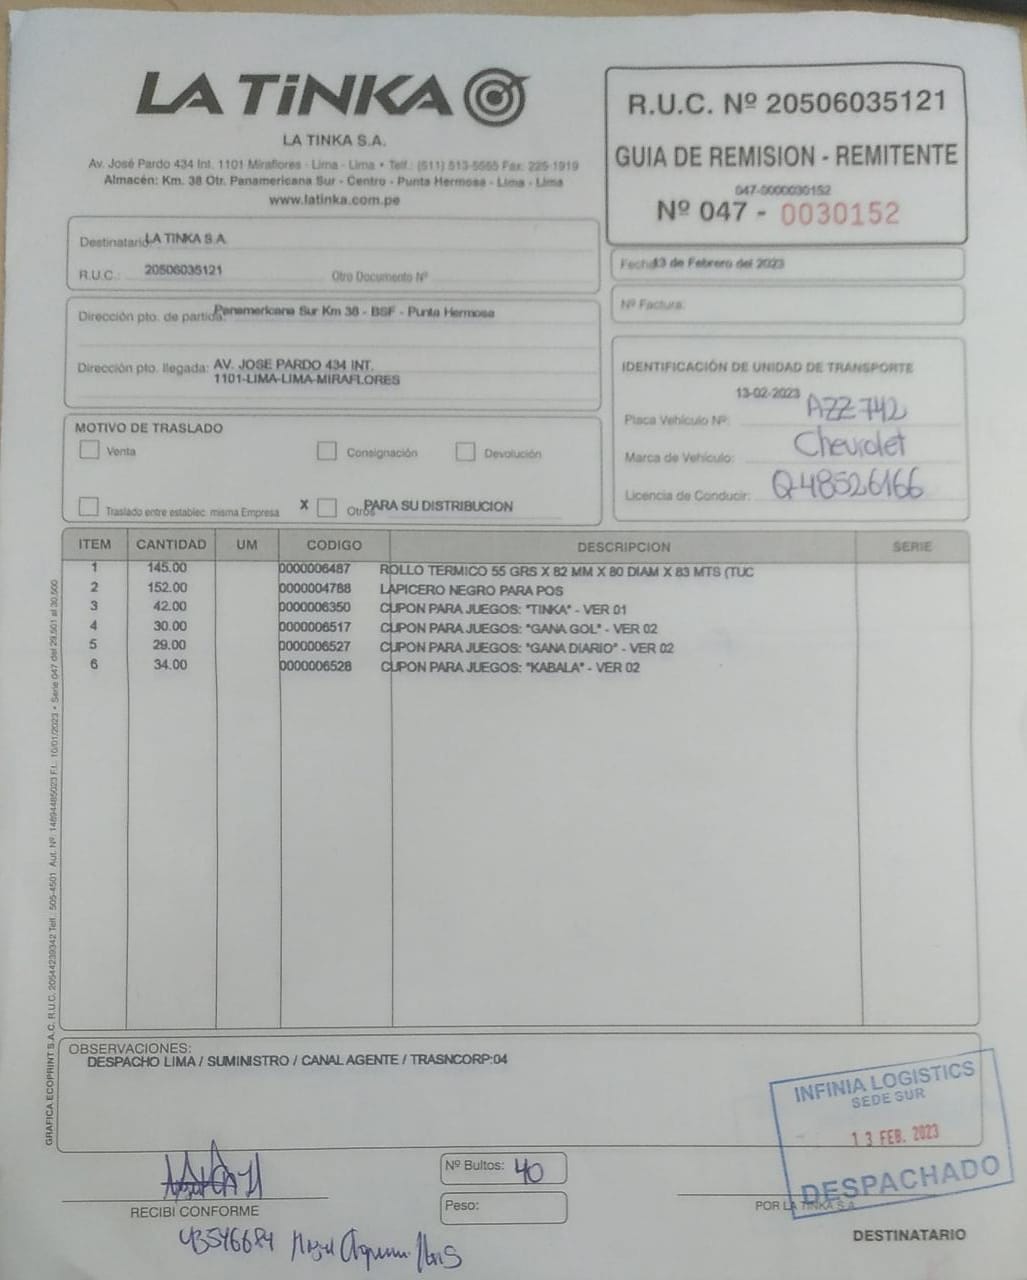 LA TiNKA
LA TINKA S.A.
Av. José Pardo 434 Int. 1101 Miraflores - Lima - Lima • Telf.: (511) 513-5565 Fax: 225-1919
Almacén: Km. 38 Otr. Panamericana Sur - Centro - Punta Hermosa - Lima - Lima
www.latinka.com.pe
R.U.C. Nº 20506035121
GUIA DE REMISION - REMITENTE
047-0000030152
Nº 047 - 0030152
Destinatario: LA TINKA S.A.
R.U.C.: 20506035121 Otro Documento Nº
Fecha: 13 de Febrero del 2023
Nº Factura:
Dirección pto. de partida: Panamericana Sur Km 38 - BSF - Punta Hermosa
Dirección pto. llegada: AV. JOSE PARDO 434 INT.
1101-LIMA-LIMA-MIRAFLORES
IDENTIFICACIÓN DE UNIDAD DE TRANSPORTE
13-02-2023
Placa Vehículo Nº: AZZ 742
Marca de Vehículo: Chevrolet
Licencia de Conducir: Q48526166
MOTIVO DE TRASLADO
Venta Consignación Devolución
Traslado entre establec. misma Empresa X Otros PARA SU DISTRIBUCION
ITEM CANTIDAD UM CODIGO DESCRIPCION SERIE
1 145.00 0000006487 ROLLO TERMICO 55 GRS X 82 MM X 80 DIAM X 83 MTS (TUC
2 152.00 0000004788 LAPICERO NEGRO PARA POS
3 42.00 0000006350 CUPON PARA JUEGOS: "TINKA" - VER 01
4 30.00 0000006517 CUPON PARA JUEGOS: "GANA GOL" - VER 02
5 29.00 0000006527 CUPON PARA JUEGOS: "GANA DIARIO" - VER 02
6 34.00 0000006528 CUPON PARA JUEGOS: "KABALA" - VER 02
GRAFICA ECOPRINT S.A.C. R.U.C. 20544239342 Telf.: 505-4501 Aut. Nº. 14894485023 F.I.: 10/01/2023 • Serie 047 del 29,501 al 30,500
OBSERVACIONES:
DESPACHO LIMA / SUMINISTRO / CANAL AGENTE / TRASNCORP:04
INFINIA LOGISTICS
SEDE SUR
13 FEB. 2023
DESPACHADO
Nº Bultos: 40
Peso:
RECIBI CONFORME
POR LA TINKA S.A.
DESTINATARIO